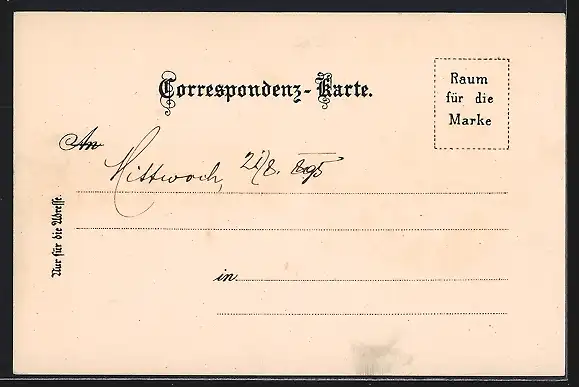 Correspondenz-Karte.
Raum
für die
Marke
An
Mittwoch, 21/8. 895
Nur für die Adresse.
in